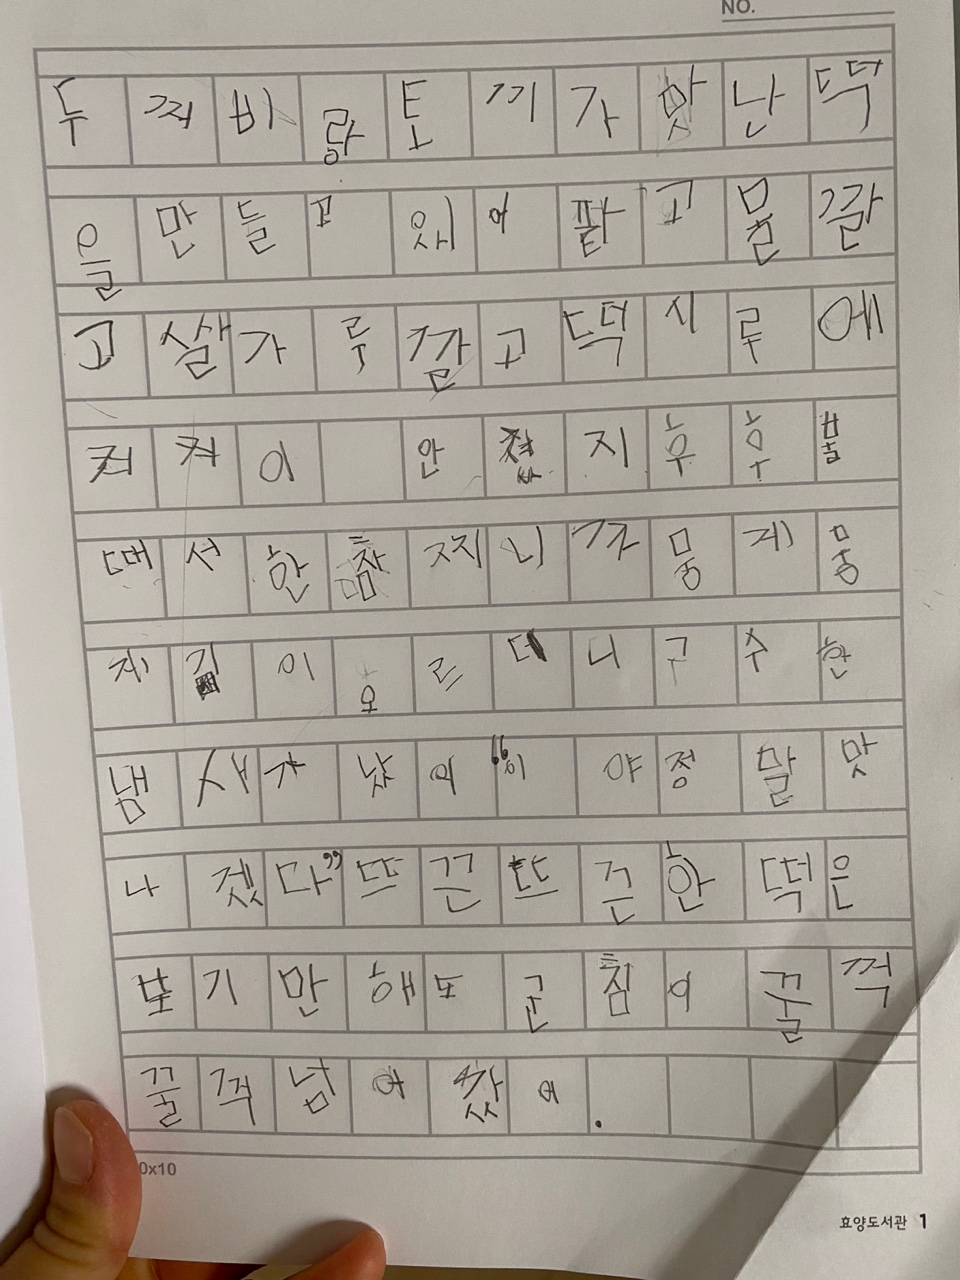 NO.
두꺼비랑토끼가맛난떡
을만들고있어팥고물깔
고쌀가루깔고떡시루에
켜켜이 안쳤지후후불
때서한참지니까뭉게뭉
게김이오르더니구수한
냄새가났어“이야정말맛
나겠다”뜨끈뜨끈한떡은
보기만해도군침이꿀꺽
꿀꺽넘어갔어.
0x10
효양도서관 1